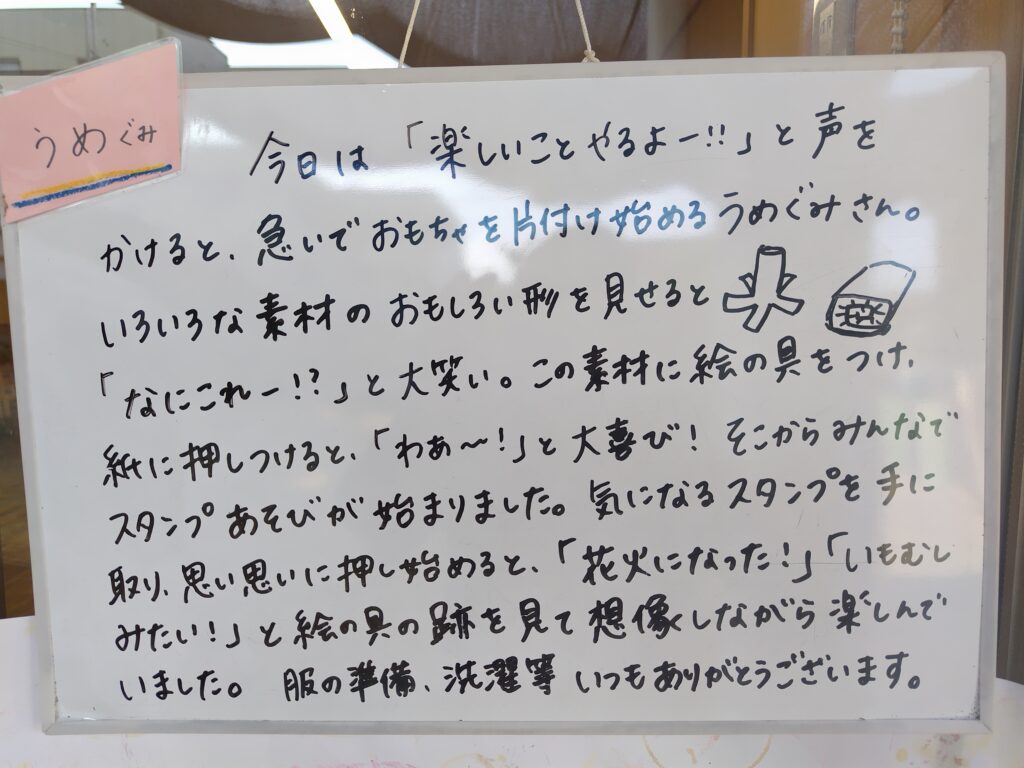 うめぐみ
今日は「楽しいことやるよー!!」と声を
かけると、急いでおもちゃを片付け始めるうめぐみさん。
いろいろな素材のおもしろい形を見せると
「なにこれー!?」と大笑い。この素材に絵の具をつけ、
紙に押しつけると、「わぁ〜!」と大喜び! そこからみんなで
スタンプあそびが始まりました。気になるスタンプを手に
取り、思い思いに押し始めると、「花火になった!」「いもむし
みたい!」と絵の具の跡を見て想像しながら楽しんで
いました。 服の準備、洗濯等いつもありがとうございます。